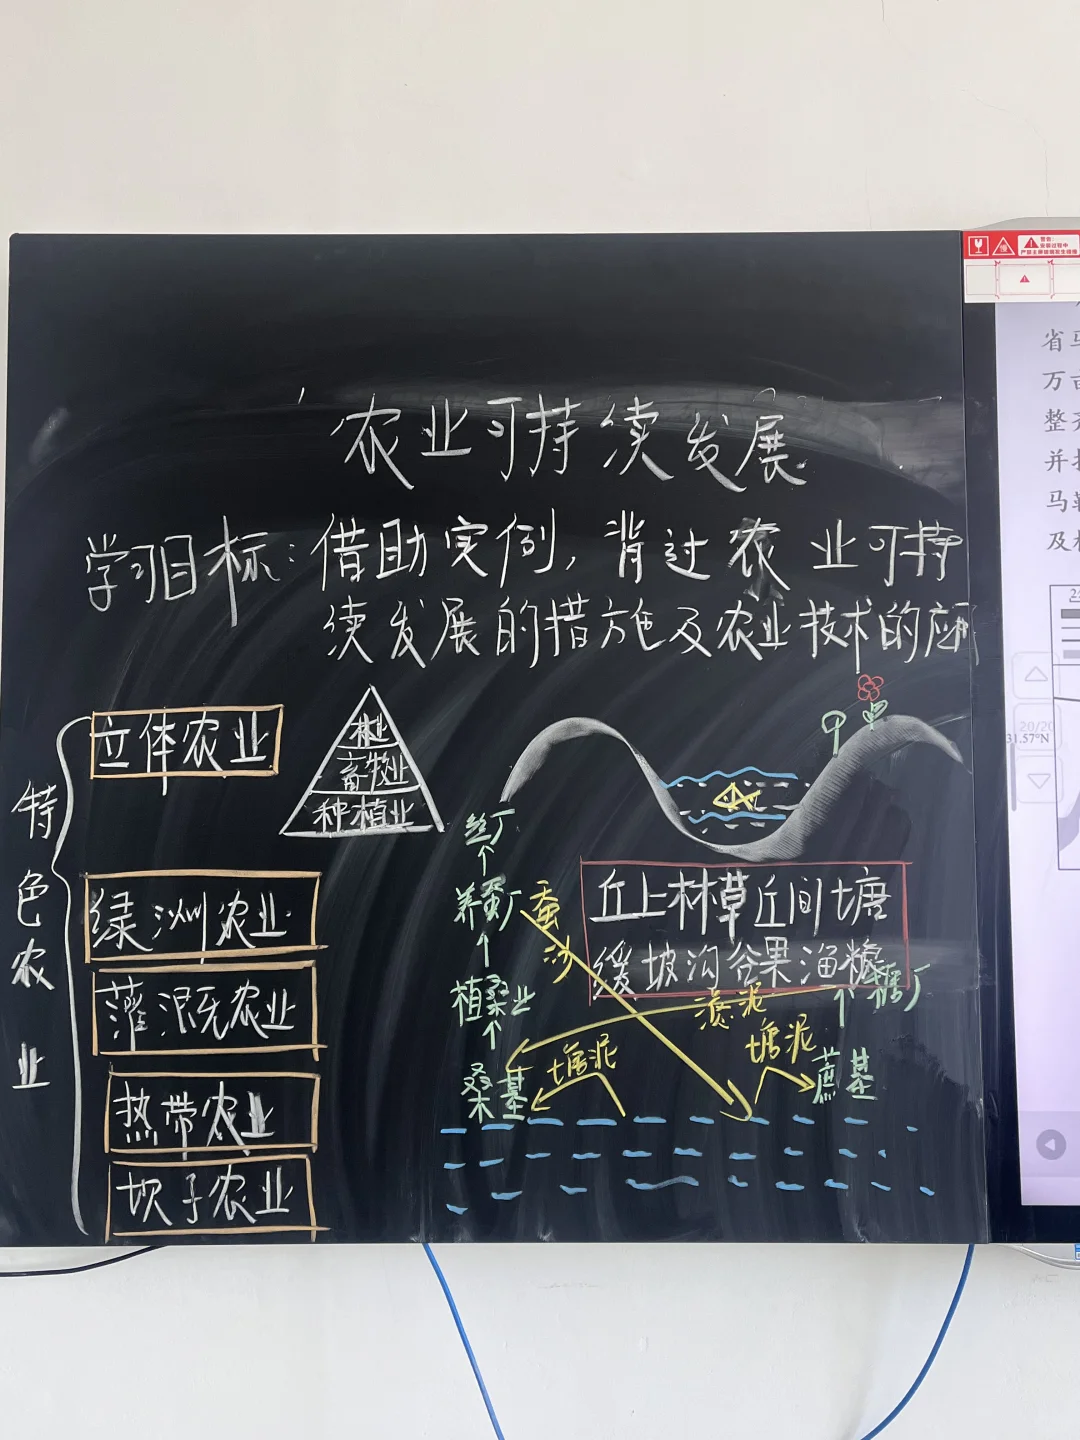 农业可持续发展
学习目标:借助实例,背过农业可持
续发展的措施及农业技术的应用
特色农业
立体农业
绿洲农业
灌溉农业
热带农业
坎子农业
林业
畜牧业
种植业
丘上林草丘间塘
缓坡沟谷果渔粮
丝厂
养蚕厂
植桑业
桑基
蚕沙
滤泥
塘泥
塘泥
糖厂
蔗基
省
万亩
整齐
并
马勒
及
31.57°N
20/20